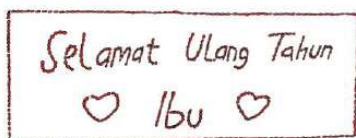 Selamat Ulang Tahun
♡ Ibu ♡